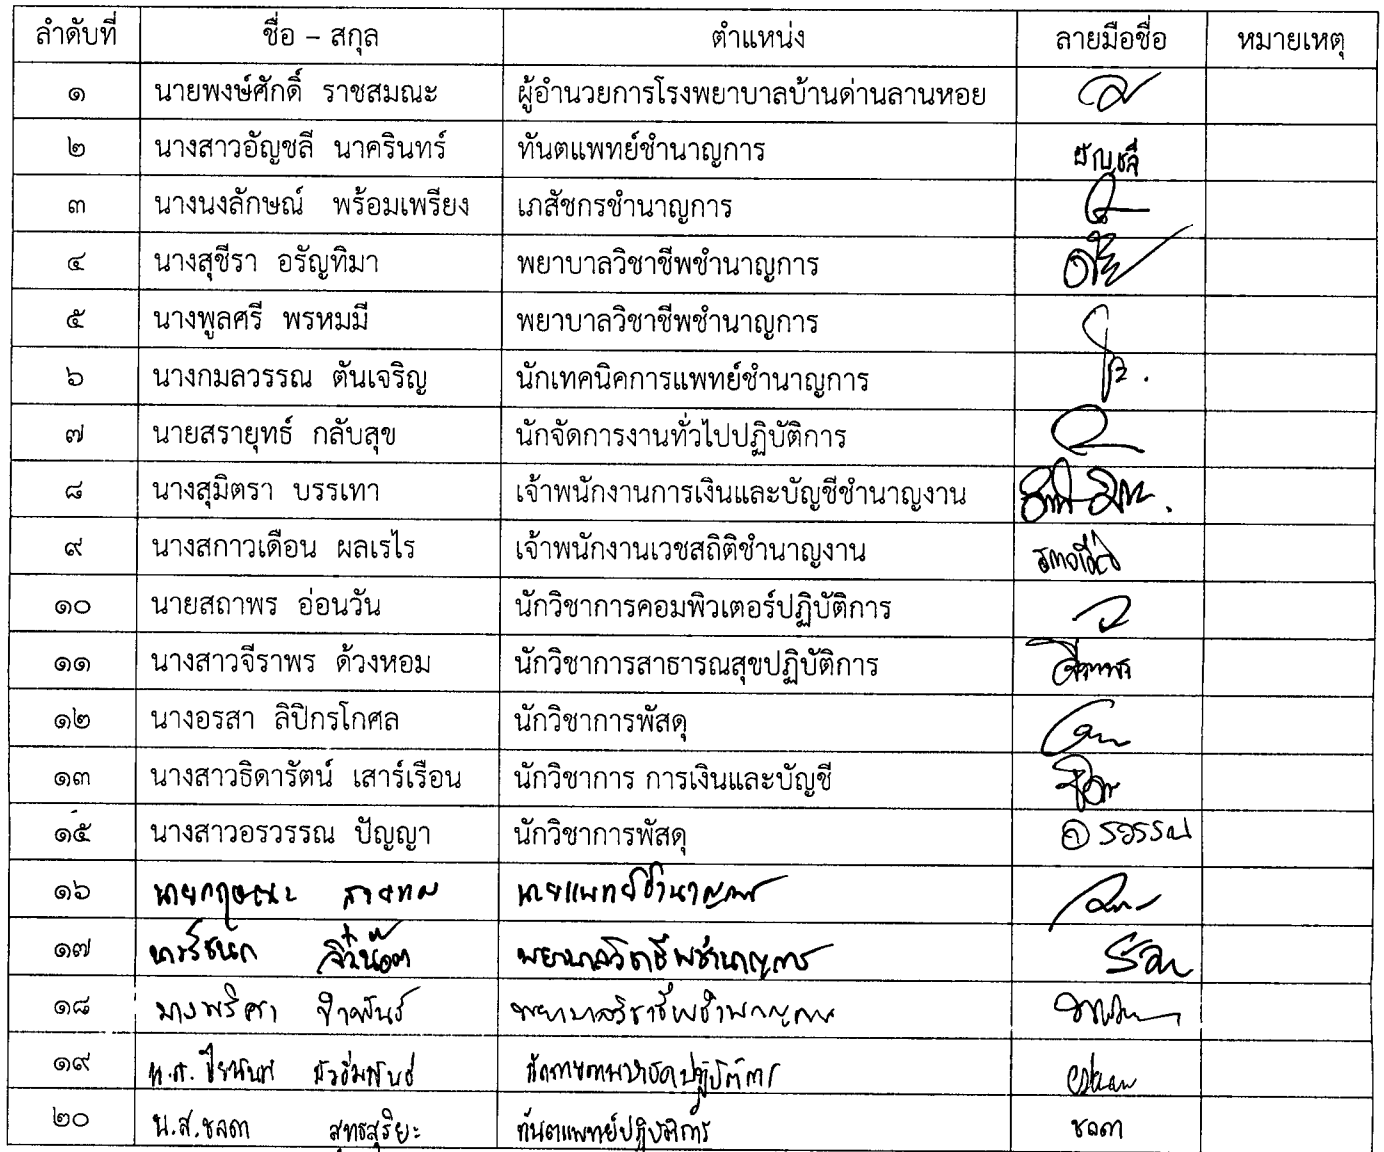 ลำดับที่ ชื่อ – สกุล ตำแหน่ง ลายมือชื่อ หมายเหตุ
๑ นายพงษ์ศักดิ์ ราชสมณะ ผู้อำนวยการโรงพยาบาลบ้านด่านลานหอย
๒ นางสาวอัญชลี นาครินทร์ ทันตแพทย์ชำนาญการ อัญชลี
๓ นางนงลักษณ์ พร้อมเพรียง เภสัชกรชำนาญการ
๔ นางสุชีรา อรัญทิมา พยาบาลวิชาชีพชำนาญการ
๕ นางพูลศรี พรหมมี พยาบาลวิชาชีพชำนาญการ
๖ นางกมลวรรณ ตันเจริญ นักเทคนิคการแพทย์ชำนาญการ
๗ นายสรายุทธ์ กลับสุข นักจัดการงานทั่วไปปฏิบัติการ
๘ นางสุมิตรา บรรเทา เจ้าพนักงานการเงินและบัญชีชำนาญงาน
๙ นางสกาวเดือน ผลเรไร เจ้าพนักงานเวชสถิติชำนาญงาน
๑๐ นายสถาพร อ่อนวัน นักวิชาการคอมพิวเตอร์ปฏิบัติการ
๑๑ นางสาวจีราพร ด้วงหอม นักวิชาการสาธารณสุขปฏิบัติการ จีราพร
๑๒ นางอรสา ลิปิกรโกศล นักวิชาการพัสดุ
๑๓ นางสาวธิดารัตน์ เสาร์เรือน นักวิชาการ การเงินและบัญชี
๑๕ นางสาวอรวรรณ ปัญญา นักวิชาการพัสดุ อรวรรณ
๑๖ นายกฤษณะ นายแพทย์ชำนาญการ
๑๗ พยาบาลวิชาชีพชำนาญการ
๑๘ พยาบาลวิชาชีพชำนาญการ
๑๙ น.ส.
๒๐ น.ส.ชลดา สุทธสุริยะ ทันตแพทย์ปฏิบัติการ ชลดา